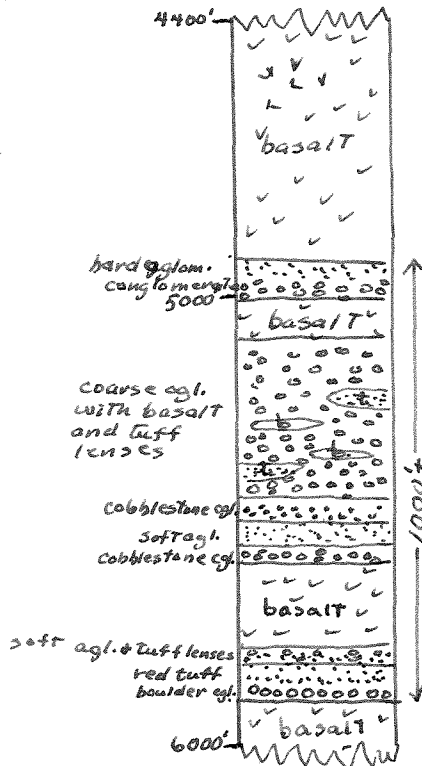 4400'
basalt
hard aglom.
conglomerate
5000'
basalt
coarse agl.
with basalt
and tuff
lenses
t
t
t
t
cobblestone agl.
soft agl.
cobblestone agl.
1000'±
basalt
soft agl. & tuff lenses
red tuff
boulder agl.
basalt
6000'